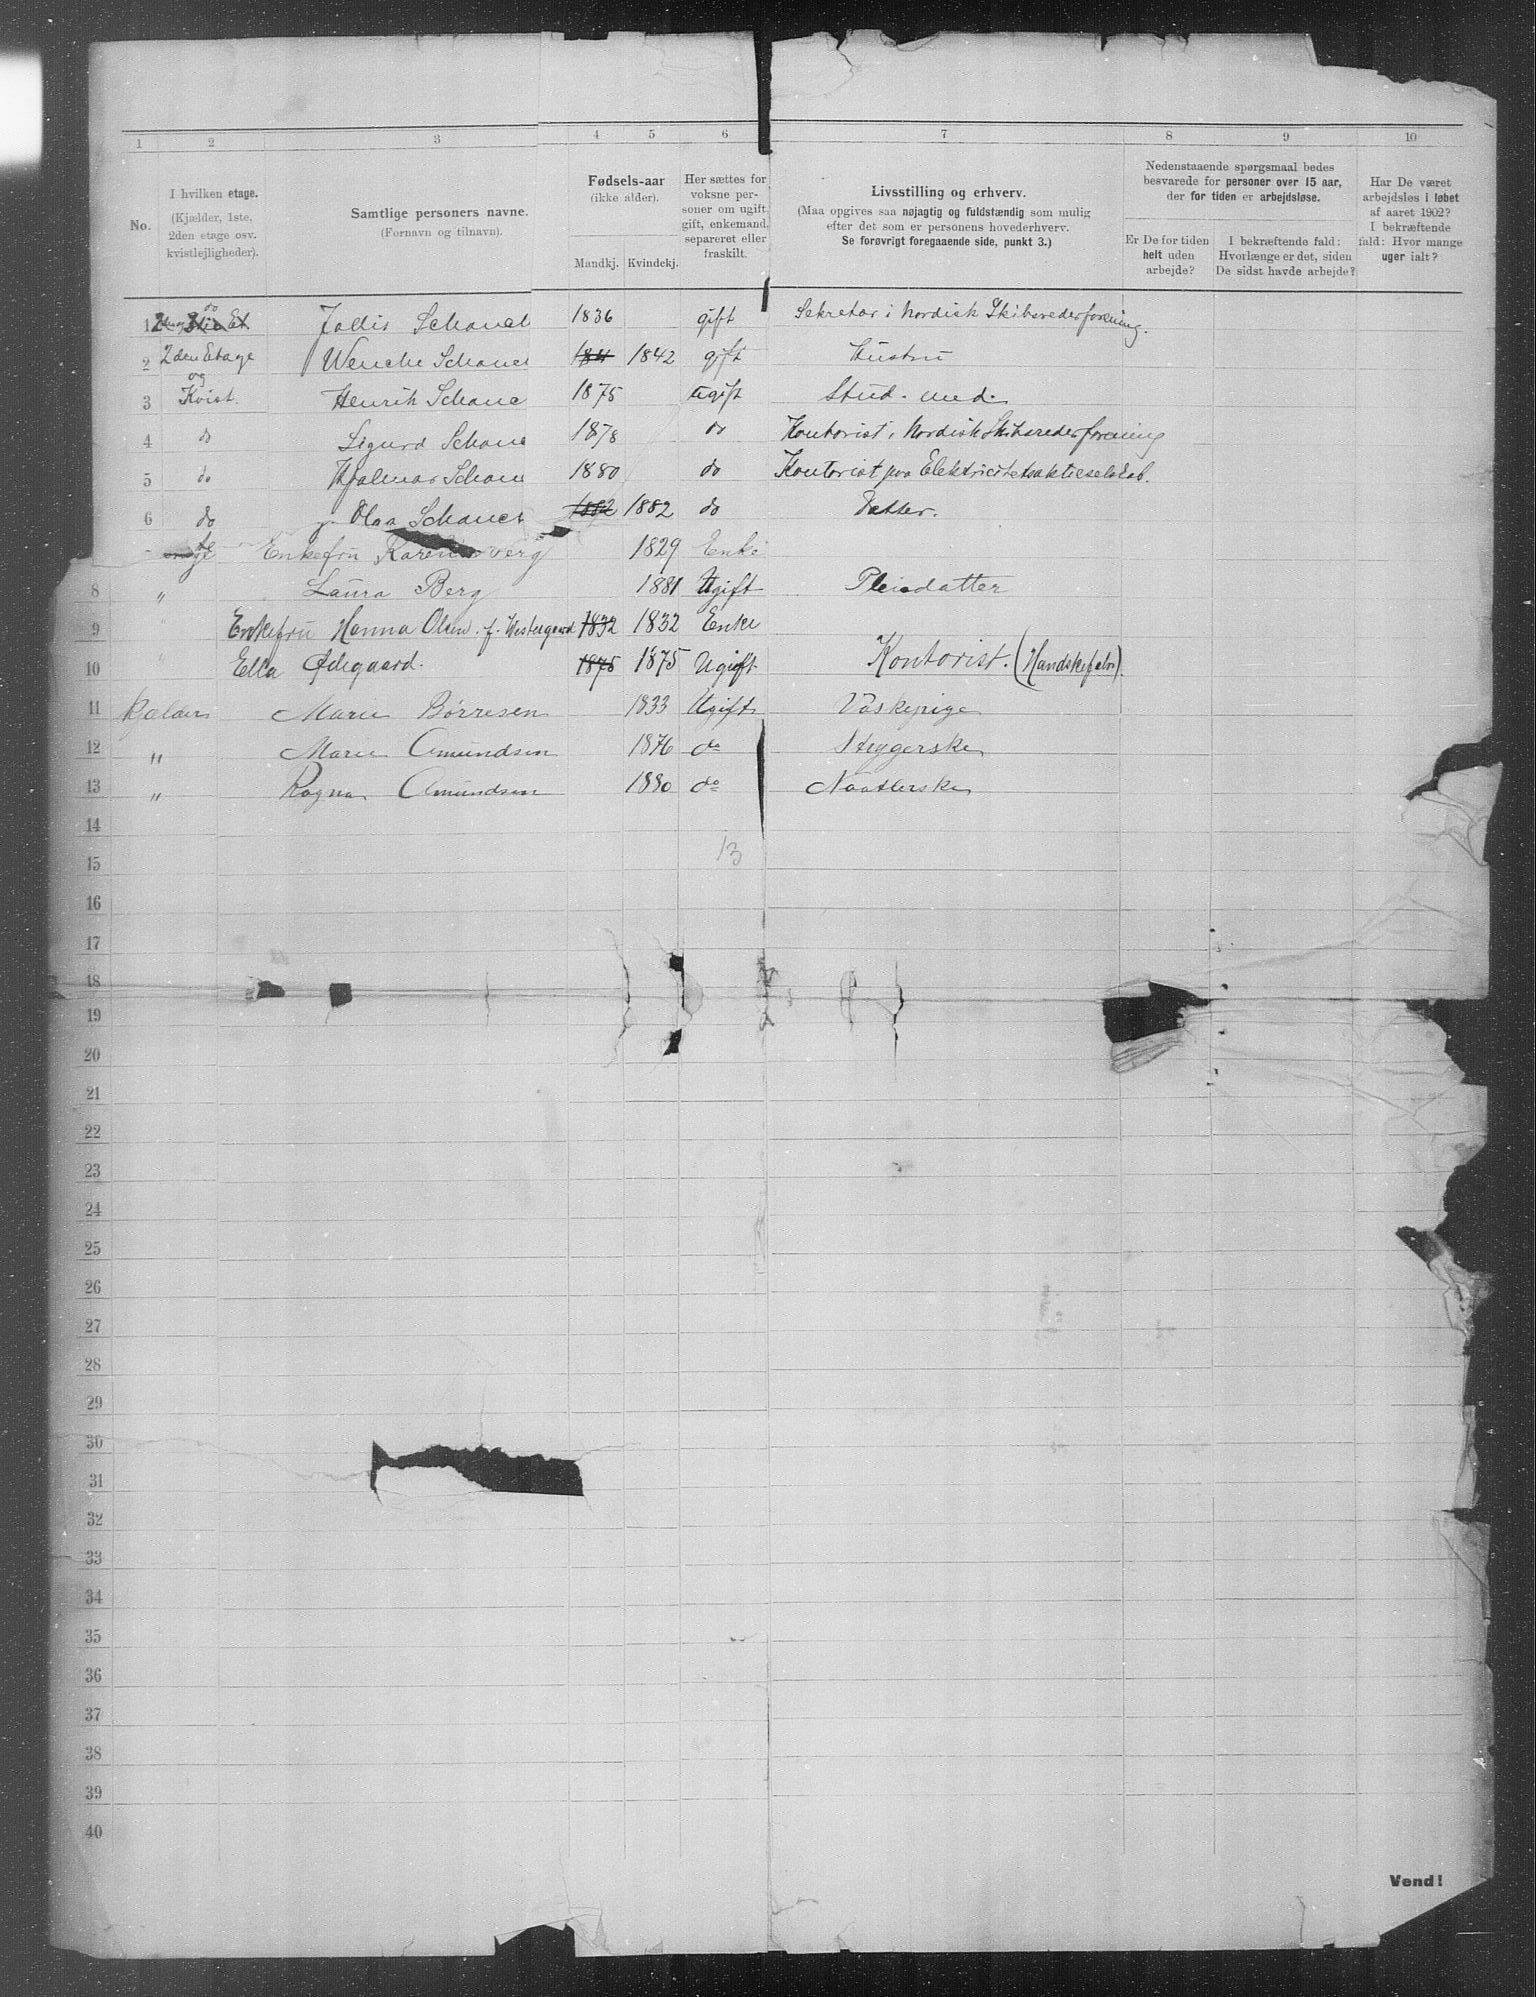 1 2 3 4 5 6 7 8 9 10
No.
I hvilken etage.
(Kjælder, 1ste,
2den etage osv.
kvistlejligheder).
Samtlige personers navne.
(Fornavn og tilnavn).
Fødsels-aar
(ikke alder).
Mandkj. Kvindekj.
Her sættes for
voksne per-
soner om ugift,
gift, enkemand,
separeret eller
fraskilt.
Livsstilling og erhverv.
(Maa opgives saa nøjagtig og fuldstændig som mulig
efter det som er personens hovederhverv.
Se forøvrigt foregaaende side, punkt 3.)
Nedenstaaende spørgsmaal bedes
besvarede for personer over 15 aar,
der for tiden er arbejdsløse.
Er De for tiden
helt uden
arbejde?
I bekræftende fald:
Hvorlænge er det, siden
De sidst havde arbejde?
Har De været
arbejdsløs i løbet
af aaret 1902?
I bekræftende
fald: Hvor mange
uger ialt?
1 do 1836 gift Sekretær i Nordisk Skibsrederforening.
2 2den Etage Wenche Schanc 1842 gift Hustru
3 og Kvist. Henrik Schanc 1875 ugift Stud. med.
4 do Sigurd Schanc 1878 do Kontorist i Nordisk Skibsrederforening
5 do Hjalmar Schanc 1880 do Kontorist paa Elektricitetsaktieselskab.
6 do Olga Schanc 1882 1882 do Datter.
do Enkefru Karen Berg 1829 Enke
8 " Laura Berg 1881 Ugift Pleiedatter
9 " Enkefru Hanna Olsen f. Westergaard 1832 1832 Enke
10 " Ella Ødegaard. 1875 1875 Ugift Kontorist. (Handskefabr).
11 Kjælder Marie Børresen 1833 Ugift Vaskepige
12 " Marie Amundsen 1876 do Strygerske
13 " Ragna Amundsen 1880 do Naadlerske
14
13
15
16
17
18
19
20
21
22
23
24
25
26
27
28
29
30
31
32
33
34
35
36
37
38
39
40
Vend!